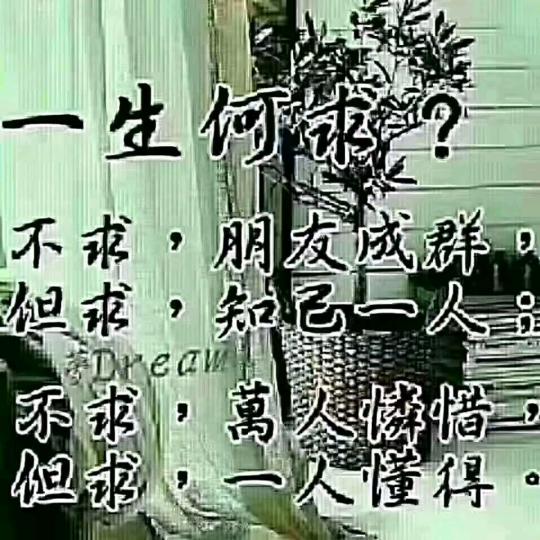 一生何求？
不求，朋友成群，
但求，知己一人；
Dream
不求，萬人憐惜，
但求，一人懂得。